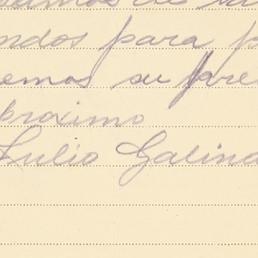 ndos para p
emos su pre
proximo
Julio Galind